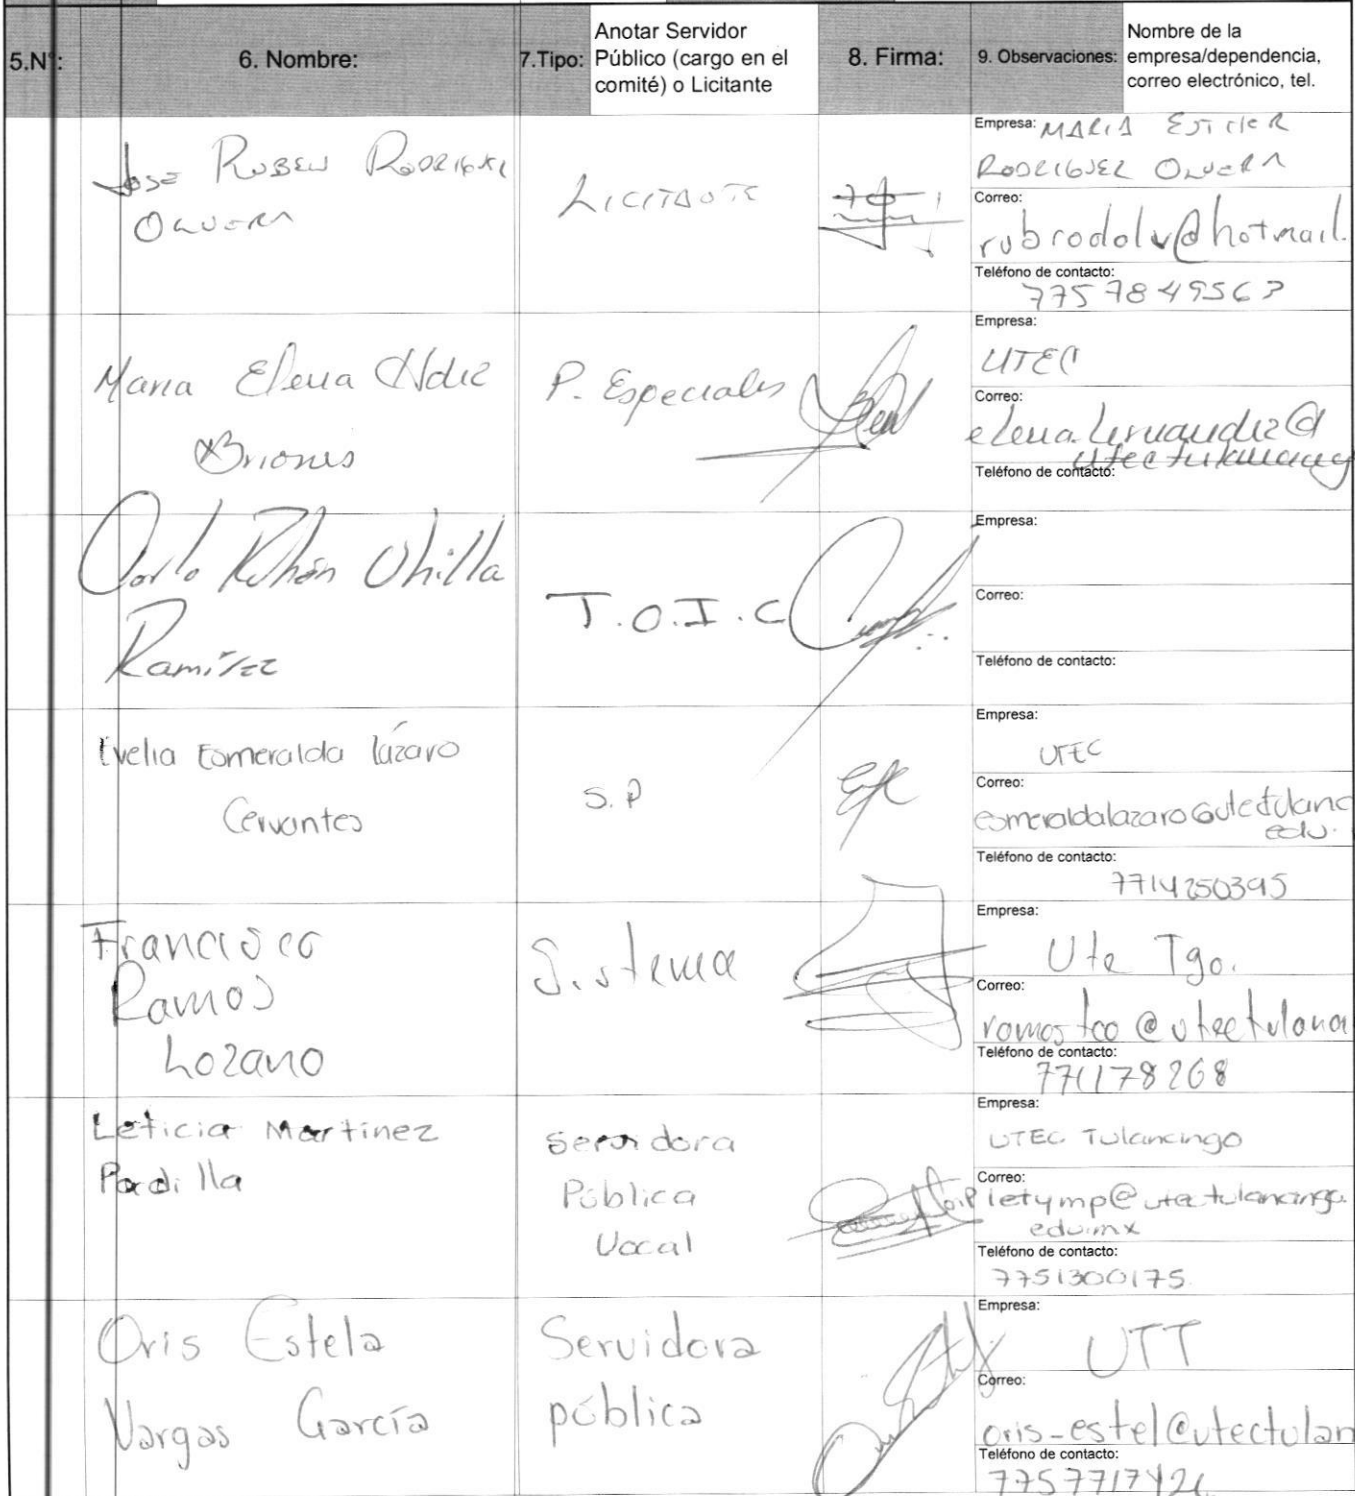 5.N°: 6. Nombre: 7.Tipo: Anotar Servidor Público (cargo en el comité) o Licitante 8. Firma: 9. Observaciones: Nombre de la empresa/dependencia, correo electrónico, tel.
Jose Ruben Rodriguez
Olvera
Licitante
Empresa: MARIA ESTHER
RODRIGUEZ OLVERA
Correo:
rubrodolv@hotmail.
Teléfono de contacto:
7757849563
Maria Elena Hdez
Briones
P. Especiales
Empresa:
UTEC
Correo:
elena.hernandez@
utectulancing
Teléfono de contacto:
Ramírez
T.O.I.C
Empresa:
Correo:
Teléfono de contacto:
Evelia Esmeralda lázaro
Cervantes
S.P
Empresa:
UTEC
Correo:
esmeraldalazaro@utectulanc
edu.
Teléfono de contacto:
7714250395
Francisco
Ramos
Lozano
Sistema
Empresa:
Ute Tgo.
Correo:
ramosfco@utectulana
Teléfono de contacto:
771178268
Leticia Martinez
Padilla
Servidora
Pública
Vocal
Empresa:
UTEC Tulancingo
Correo:
letymp@utectulancingo.
edu.mx
Teléfono de contacto:
7751300175
Oris Estela
Vargas García
Servidora
pública
Empresa:
UTT
Correo:
oris-estel@utectulan
Teléfono de contacto:
7757717426